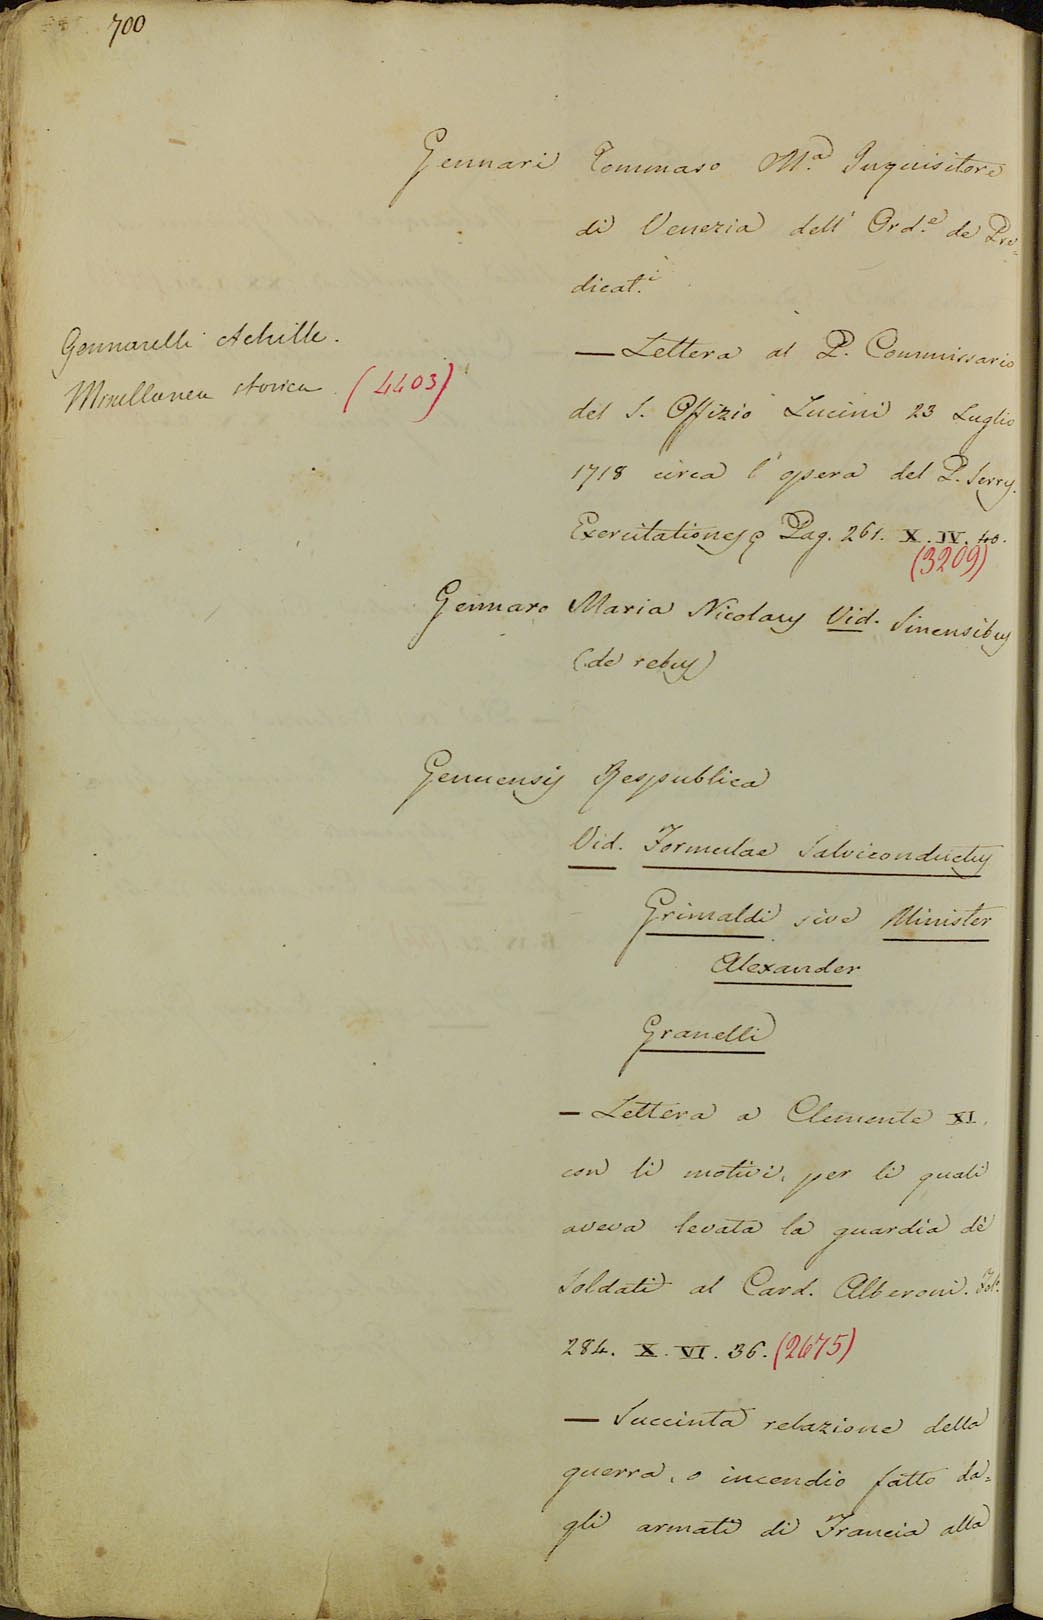 700
Gennari Tommaso M.ª Inquisitore
di Venezia dell' Ord.e de Pre=
dicat.i
Gennarelli Achille.
Miscellanea storica (4403)
— Lettera al P. Commissario
del S. Offizio Lucini 23 Luglio
1718 circa l'opera del P. Serry.
Exercitationes Pag. 261. X. IV. 40.
(3209)
Gennaro Maria Nicolaus Vid. Sinensibus
(de rebus)
Genuensis Respublica
Vid. Formulae Salviconductus
Grimaldi sive Minister
Alexander
Granelli
— Lettera a Clemente XI.
con li motivi, per li quali
aveva levata la guardia de'
Soldati al Card. Alberoni. Fol.
284. X. VI. 36. (2675)
— Succinta relazione della
guerra, o incendio fatto da=
gli armati di Francia alla